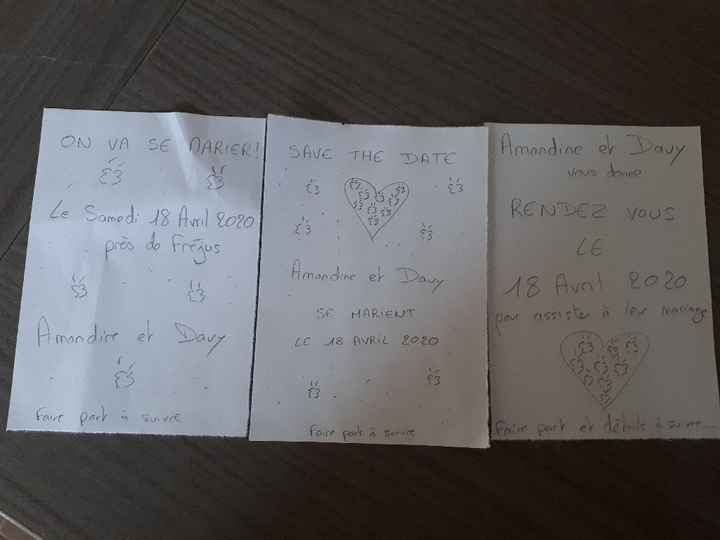 ON VA SE MARIER!
Le Samedi 18 Avril 2020
près de Fréjus
Amandine et Davy
Faire part à suivre
SAVE THE DATE
Amandine et Davy
SE MARIENT
LE 18 AVRIL 2020
Faire part à suivre
Amandine et Davy
vous donne
RENDEZ VOUS
LE
18 Avril 2020
pour assister à leur mariage
Faire part et détails à suivre...